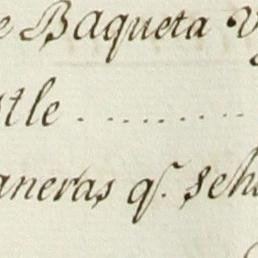 e Baqueta V
stle . . . . . . . . .
aneras q.ͤ seh